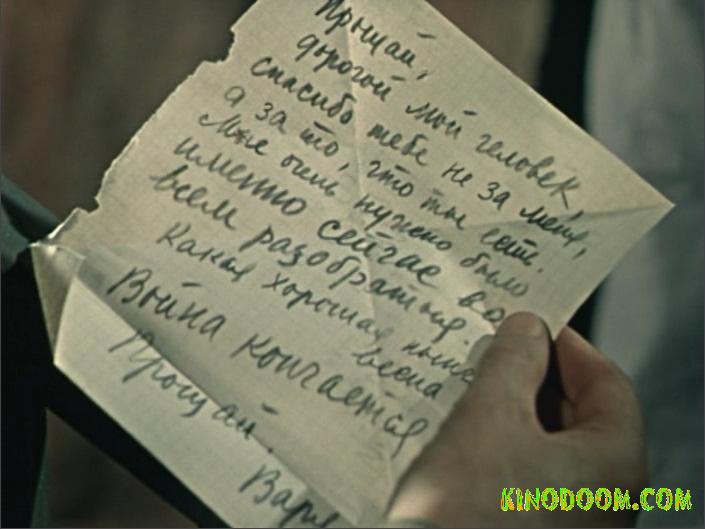 Прощай,
дорогой мой человек,
спасибо тебе не за меня,
а за то, что ты есть.
Мне очень нужно было
именно сейчас во
всем разобраться.
Какая хорошая ныне
весна
Война кончается
Прощай.
Варя
KINODOOM.COM